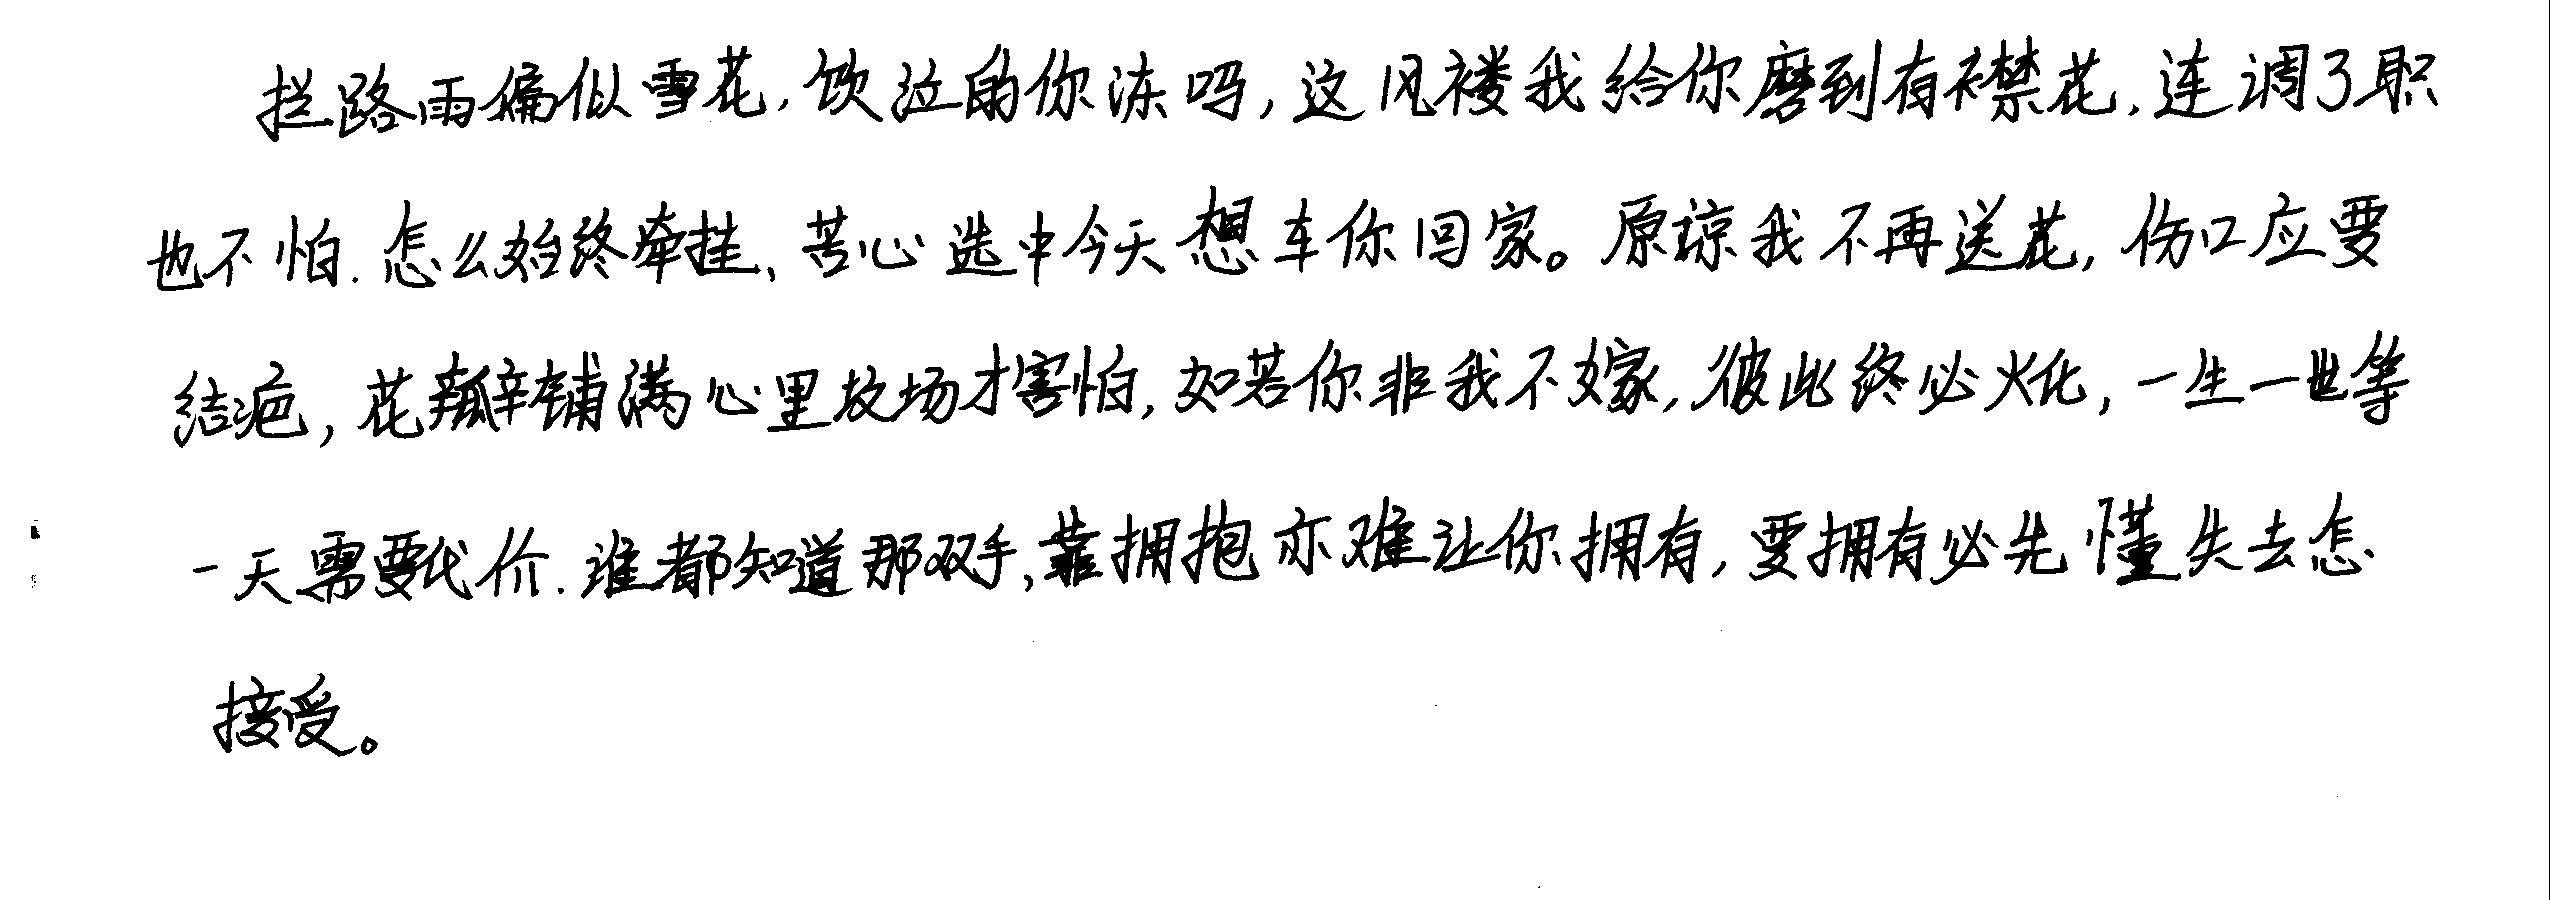 拦路雨偏似雪花，饮泣的你冻吗，这风褛我给你磨到有襟花，连调了职
也不怕．怎么始终牵挂、苦心选中今天想车你回家。原谅我不再送花，伤口应要
结疤，花瓣铺满心里坟场才害怕，如若你非我不嫁，彼此终必火化，一生一世等
一天需要代价．谁都知道那双手，靠拥抱亦难让你拥有，要拥有必先懂失去怎
接受。